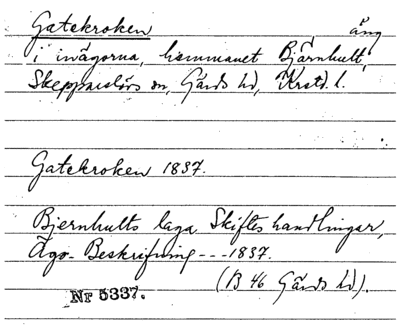 Gatekroken äng
i inägorna, hemmanet Bjärnhult,
Skepparslövs sn, Gärds hd, Krstd. l.
Gatekroken 1837.
Bjernhults laga Skifteshandlingar,
Ägo-Beskrifning --- 1837.
(B 46 Gärds hd).
Nr 5337.